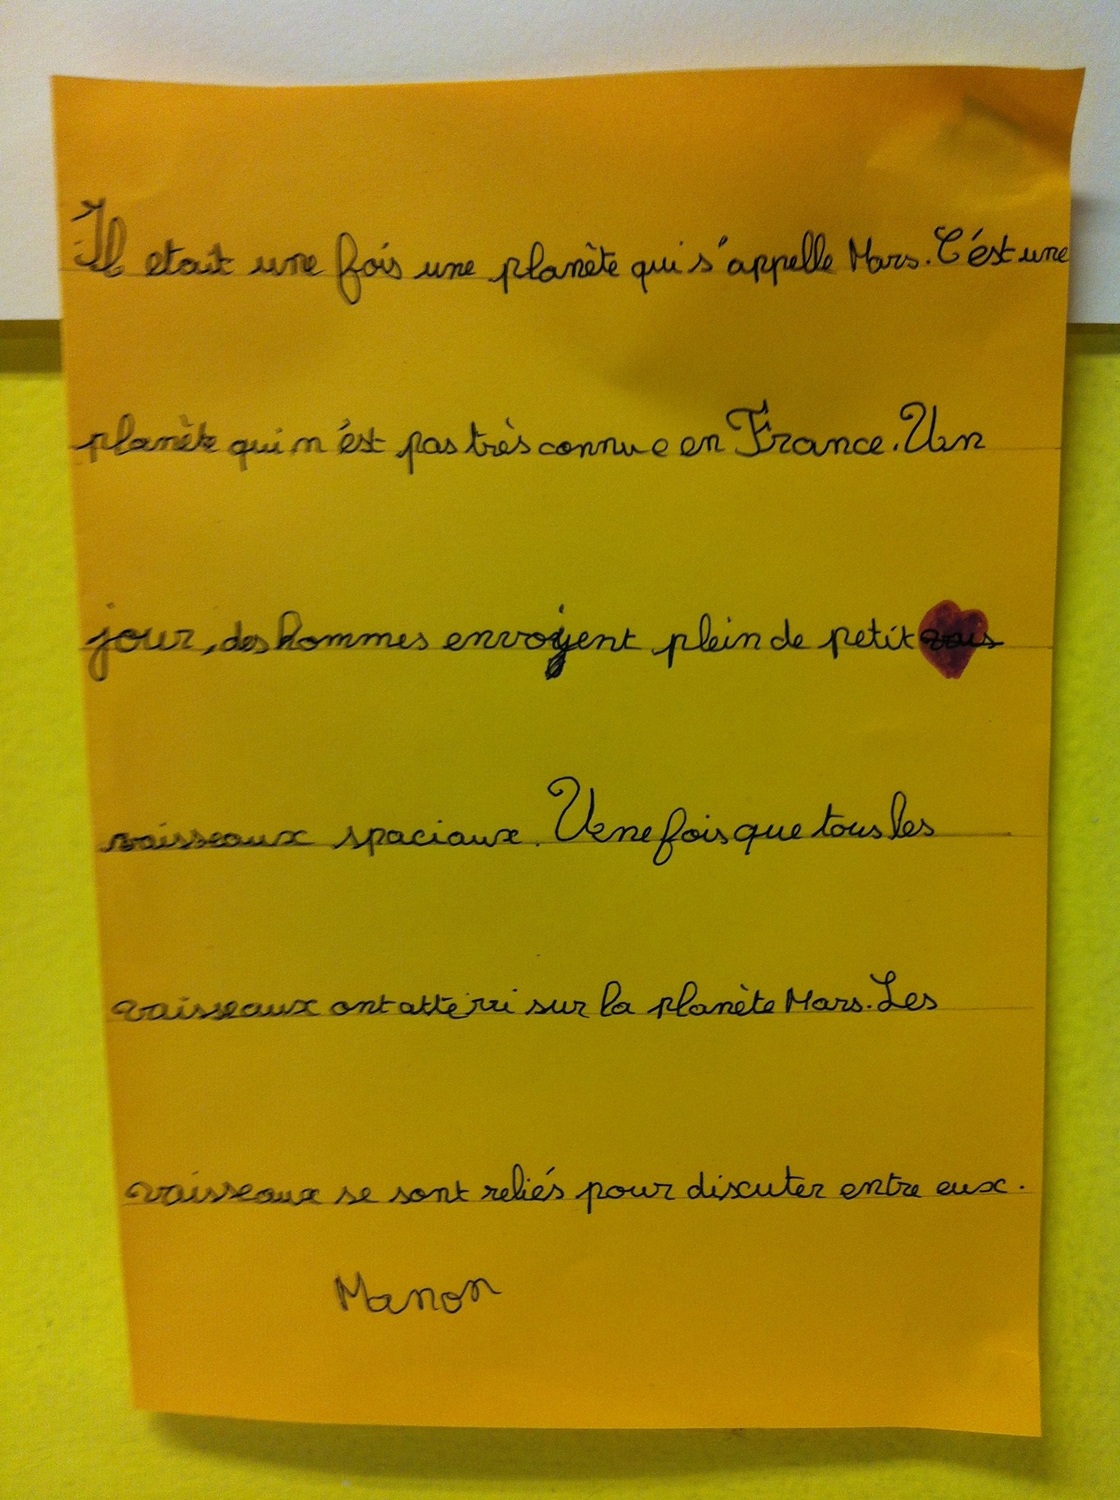 Il etait une fois une planète qui s'appelle Mars. C'ést une
planète qui n'ést pas très connue en France. Un
jour, des hommes envoyent plein de petit vais
vaisseaux spaciaux. Une fois que tous les
vaisseaux ont atterri sur la planète Mars. Les
vaisseaux se sont reliés pour discuter entre eux.
Manon